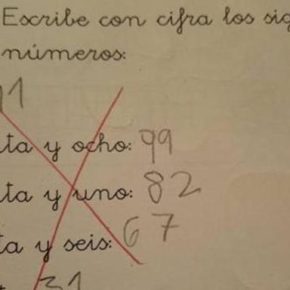 Escribe con cifra los sig
números:
91
ta y ocho: 99
ta y uno: 82
ta y seis: 67
31